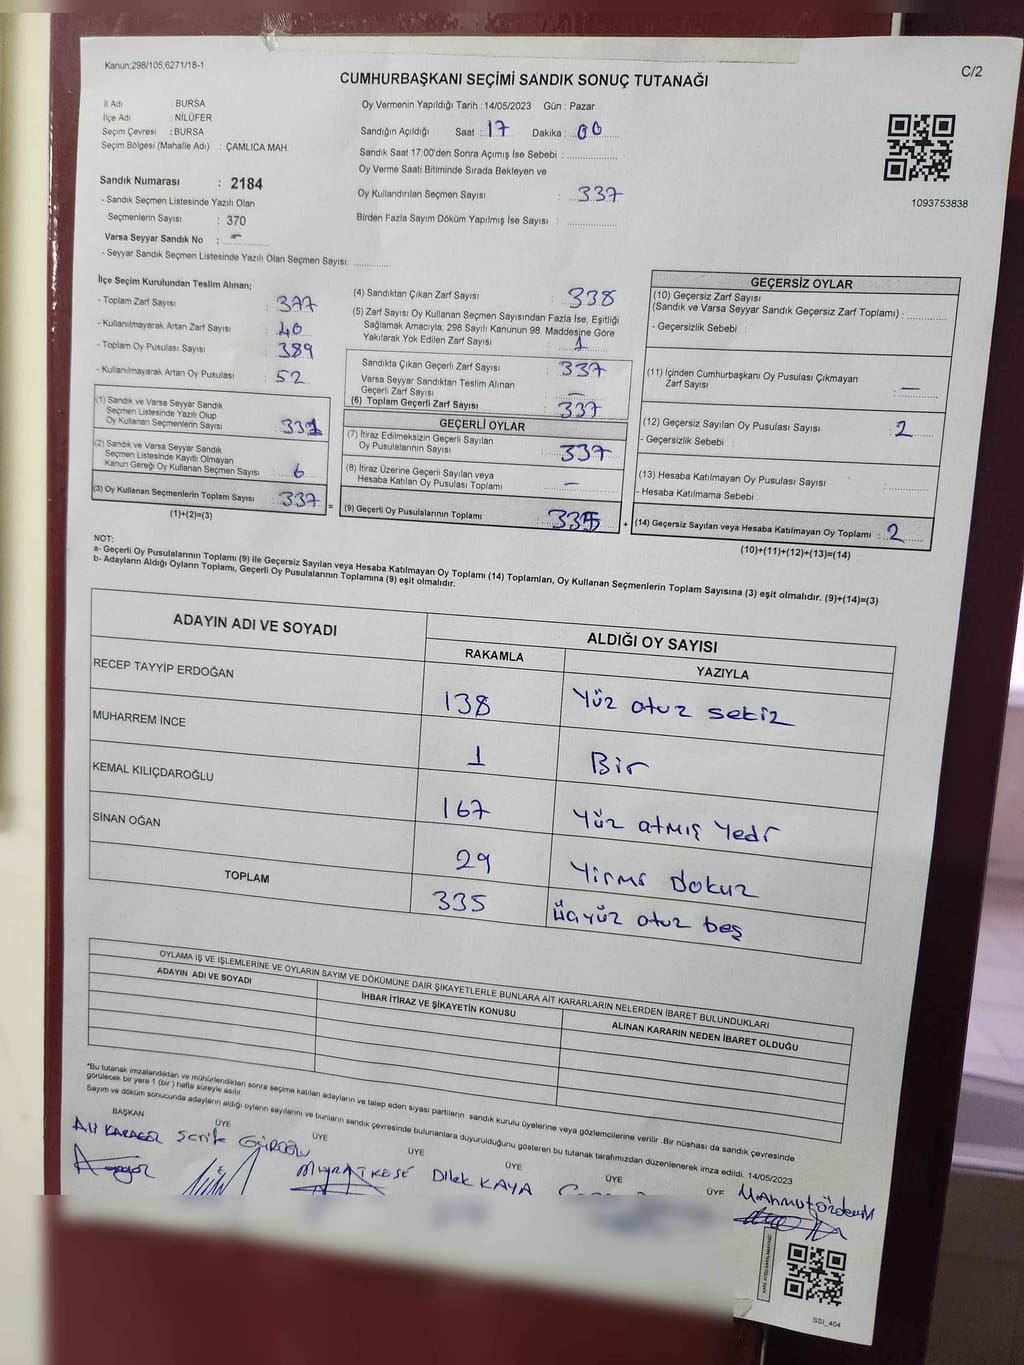 Kanun;298/105,6271/18-1
C/2
CUMHURBAŞKANI SEÇİMİ SANDIK SONUÇ TUTANAĞI
İl Adı : BURSA
İlçe Adı : NİLÜFER
Seçim Çevresi : BURSA
Seçim Bölgesi (Mahalle Adı) : ÇAMLICA MAH.
Sandık Numarası : 2184
- Sandık Seçmen Listesinde Yazılı Olan
Seçmenlerin Sayısı : 370
Varsa Seyyar Sandık No : -
- Seyyar Sandık Seçmen Listesinde Yazılı Olan Seçmen Sayısı: ............
Oy Vermenin Yapıldığı Tarih : 14/05/2023 Gün : Pazar
Sandığın Açıldığı Saat : 17 Dakika : 00
Sandık Saat 17:00'den Sonra Açımış İse Sebebi : ............
Oy Verme Saati Bitiminde Sırada Bekleyen ve
Oy Kullandırılan Seçmen Sayısı : 337
Birden Fazla Sayım Döküm Yapılmış İse Sayısı : ............
1093753838
İlçe Seçim Kurulundan Teslim Alınan;
- Toplam Zarf Sayısı : 377
- Kullanılmayarak Artan Zarf Sayısı : 40
- Toplam Oy Pusulası Sayısı : 389
- Kullanılmayarak Artan Oy Pusulası : 52
(1) Sandık ve Varsa Seyyar Sandık
Seçmen Listesinde Yazılı Olup
Oy Kullanan Seçmenlerin Sayısı : 331
(2) Sandık ve Varsa Seyyar Sandık
Seçmen Listesinde Kayıtlı Olmayan
Kanun Gereği Oy Kullanan Seçmen Sayısı : 6
(3) Oy Kullanan Seçmenlerin Toplam Sayısı : 337
(1)+(2)=(3)
(4) Sandıktan Çıkan Zarf Sayısı : 338
(5) Zarf Sayısı Oy Kullanan Seçmen Sayısından Fazla İse, Eşitliği
Sağlamak Amacıyla; 298 Sayılı Kanunun 98. Maddesine Göre
Yakılarak Yok Edilen Zarf Sayısı : 1
Sandıkta Çıkan Geçerli Zarf Sayısı : 337
Varsa Seyyar Sandıktan Teslim Alınan
Geçerli Zarf Sayısı : -
(6) Toplam Geçerli Zarf Sayısı : 337
GEÇERLİ OYLAR
(7) İtiraz Edilmeksizin Geçerli Sayılan
Oy Pusulalarının Sayısı : 337
(8) İtiraz Üzerine Geçerli Sayılan veya
Hesaba Katılan Oy Pusulası Toplamı : -
= (9) Geçerli Oy Pusulalarının Toplamı : 335
GEÇERSİZ OYLAR
(10) Geçersiz Zarf Sayısı
(Sandık ve Varsa Seyyar Sandık Geçersiz Zarf Toplamı) : ............
- Geçersizlik Sebebi :
(11) İçinden Cumhurbaşkanı Oy Pusulası Çıkmayan
Zarf Sayısı : -
(12) Geçersiz Sayılan Oy Pusulası Sayısı : 2
- Geçersizlik Sebebi :
(13) Hesaba Katılmayan Oy Pusulası Sayısı : ............
- Hesaba Katılmama Sebebi :
+ (14) Geçersiz Sayılan veya Hesaba Katılmayan Oy Toplamı : 2
(10)+(11)+(12)+(13)=(14)
NOT:
a- Geçerli Oy Pusulalarının Toplamı (9) ile Geçersiz Sayılan veya Hesaba Katılmayan Oy Toplamı (14) Toplamları, Oy Kullanan Seçmenlerin Toplam Sayısına (3) eşit olmalıdır. (9)+(14)=(3)
b- Adayların Aldığı Oyların Toplamı, Geçerli Oy Pusulalarının Toplamına (9) eşit olmalıdır.
ADAYIN ADI VE SOYADI ALDIĞI OY SAYISI
RAKAMLA YAZIYLA
RECEP TAYYİP ERDOĞAN 138 Yüz otuz sekiz
MUHARREM İNCE 1 Bir
KEMAL KILIÇDAROĞLU 167 Yüz atmış Yedi
SİNAN OĞAN 29 Yirmi Dokuz
TOPLAM 335 üçyüz otuz beş
OYLAMA İŞ VE İŞLEMLERİNE VE OYLARIN SAYIM VE DÖKÜMÜNE DAİR ŞİKAYETLERLE BUNLARA AİT KARARLARIN NELERDEN İBARET BULUNDUKLARI
ADAYIN ADI VE SOYADI İHBAR İTİRAZ VE ŞİKAYETİN KONUSU ALINAN KARARIN NEDEN İBARET OLDUĞU
*Bu tutanak imzalandıktan ve mühürlendikten sonra seçime katılan adayların ve talep eden siyasi partilerin sandık kurulu üyelerine veya gözlemcilerine verilir. Bir nüshası da sandık çevresinde
görülecek bir yere 1 (bir) hafta süreyle asılır.
Sayım ve döküm sonucunda adayların aldığı oyların sayılarını ve bunların sandık çevresinde bulunanlara duyurulduğunu gösteren bu tutanak tarafımızdan düzenlenerek imza edildi. 14/05/2023
BAŞKAN ÜYE ÜYE ÜYE ÜYE ÜYE ÜYE
Ali KARAGÖL Şerife GÜROĞLU MURAT KESE Dilek KAYA Mahmut Özdemir
SSİ_404